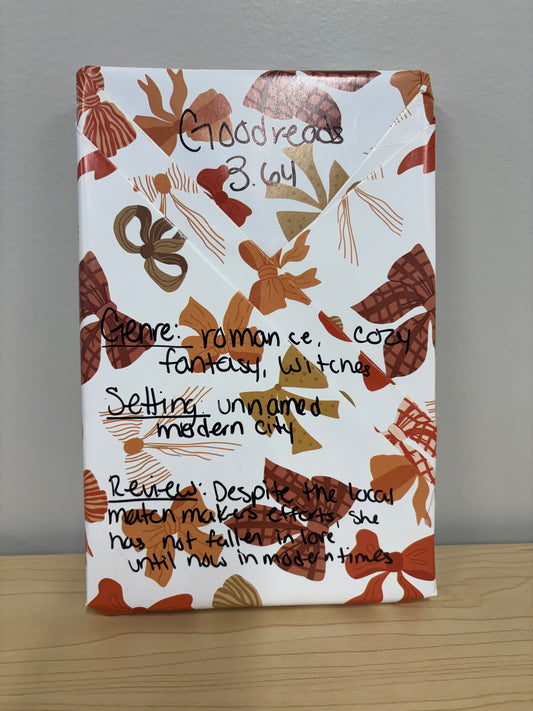 Goodreads
3.64
Genre: romance, cozy
fantasy, witches
Setting: unnamed
modern city
Review: Despite the local
match makers efforts, she
has not fallen in love
until now in modern times